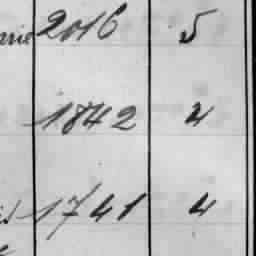 2016 5
1842 4
1741 4